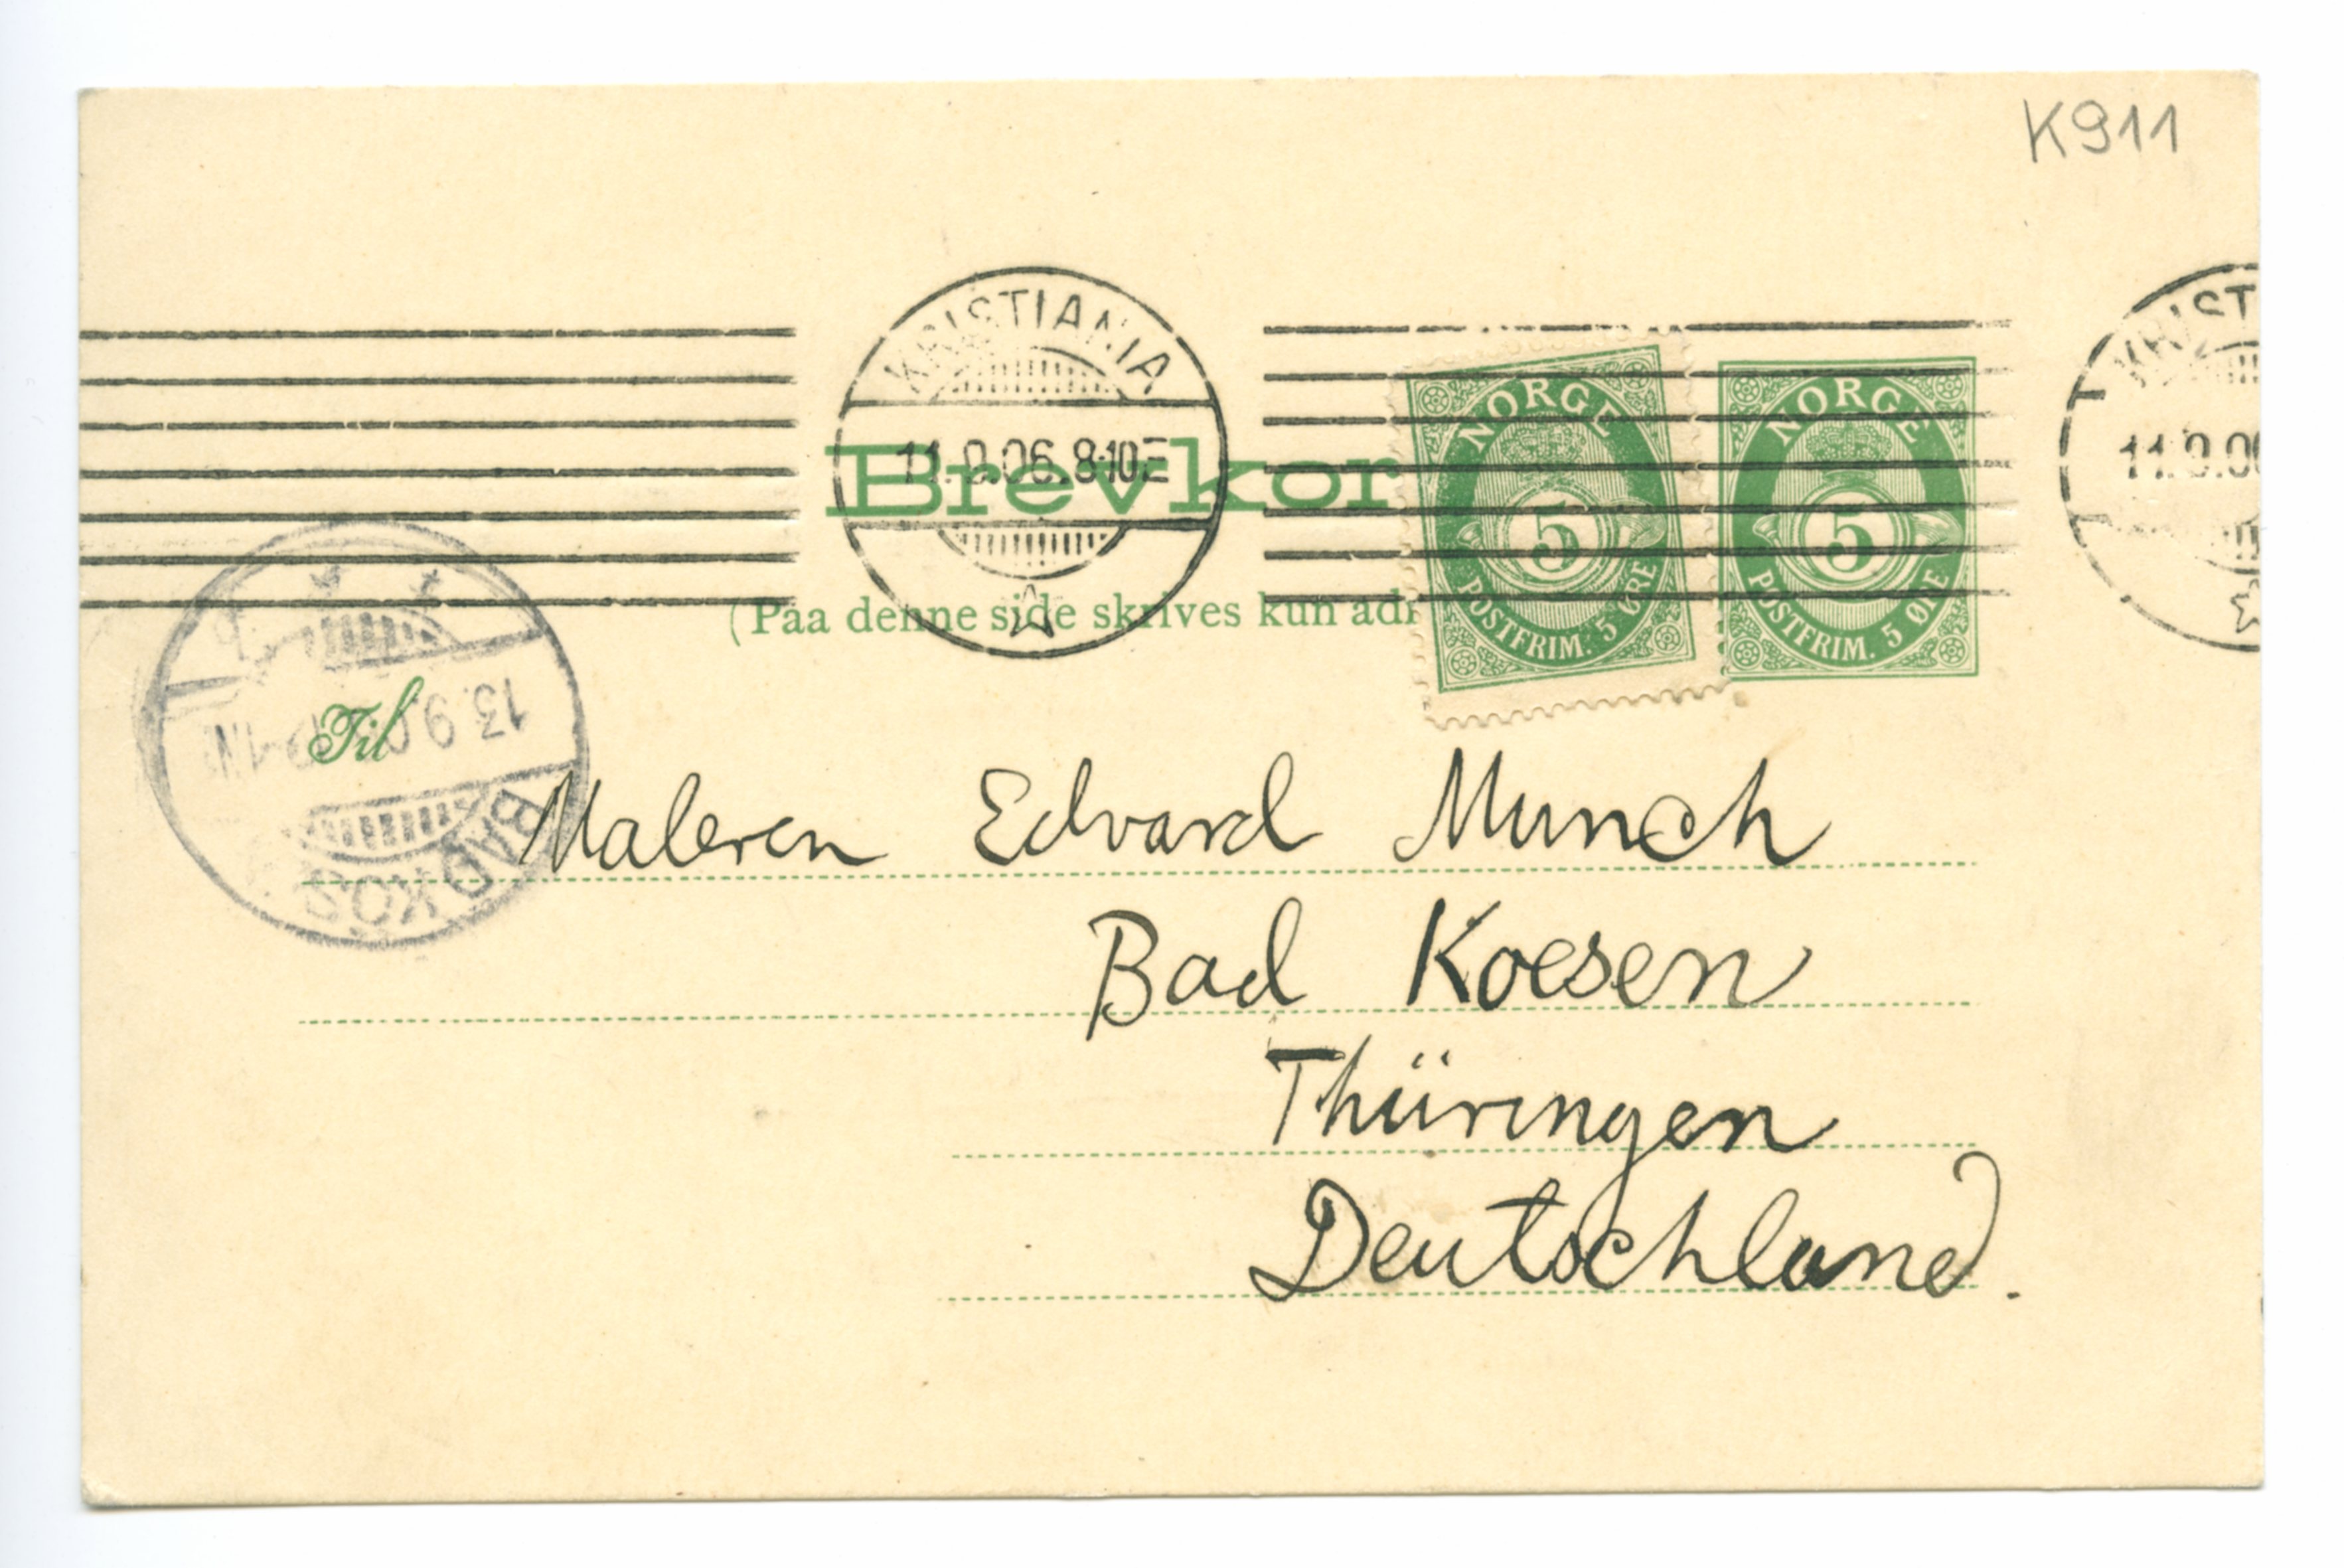 K911
KRISTIANIA
11.9.06.8-10E
KRIST
11.9.06
Brevkor
(Paa denne side skrives kun adr
NORGE
5
POSTFRIM. 5 ØRE
NORGE
5
POSTFRIM. 5 ØRE
BAD KÖS
13.9.0
Til
Maleren Edvard Munch
Bad Koesen
Thüringen
Deutschland.